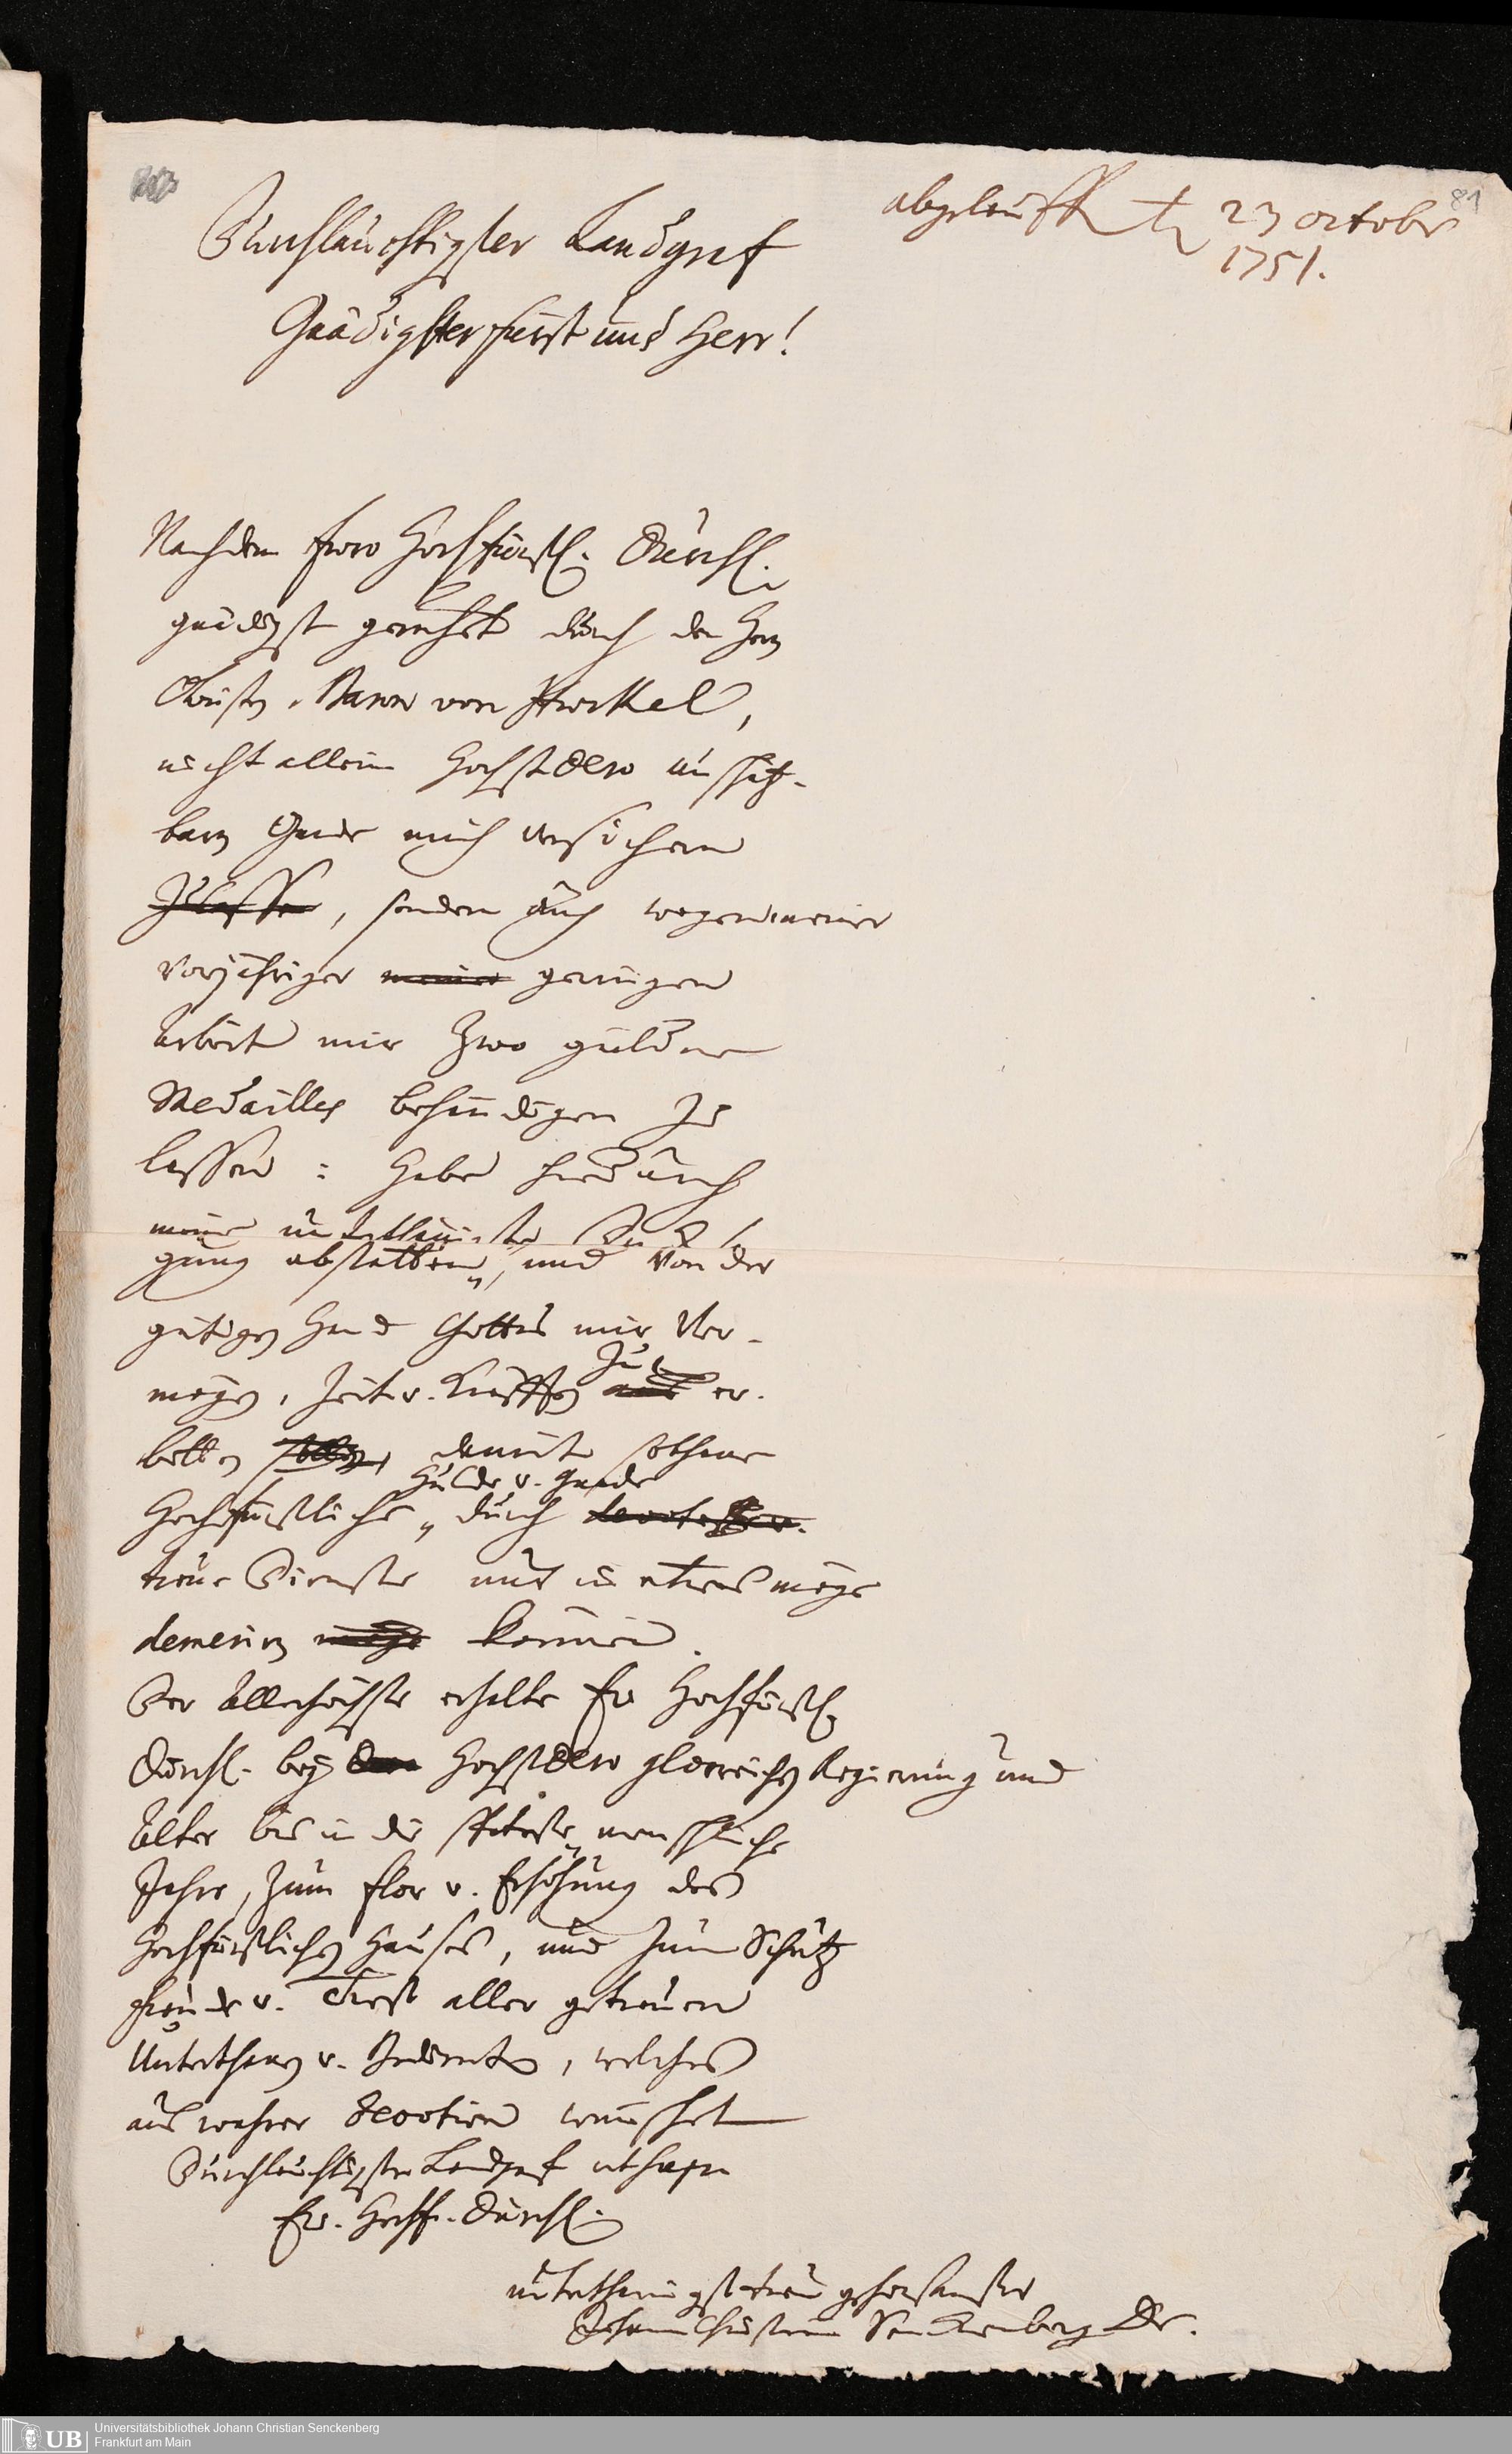 81
abgelauffen d. 23 october
1751.
Durchlauchtigster Landgraf
Gnädigster Fürst und Herr!
Nachdem Ewro Hochfürstl. Durchl.
gnädigst geruhet durch den Herrn
Obristen, Baron von
nicht allein Höchst Dero unschätz-
baren Gnade mich versichern
zu lassen, sondern auch wegen meiner
vorjähriger meiner geringen
Arbeit mir zwo güldene
Medailles behändigen zu
lassen: Habe hierdurch
meine unterthänigste Danksa
gung abstatten, und von der
gütigen Hand Gottes mir Ver-
mögen, Zeit u. Kräfften zu er-
bitten sollen, damit sothane
Huld u. Gnade
Hochfürstliche durch devotester u.
treue Dienste nur in etwas möge
demeriren möge können.
Der Allerhöchste erhalte Ew Hochfürstl.
Durchl. bey Dero Höchst Dero glorreichen Regierung und
Alter bis in die späteste menschliche
Jahre, zum Flor u. Erhöhung des
Hochfürstlichen Hauses, und zum Schutz
Freude u. Trost aller getreuen
Unterthanen u. Bedienten, welches
aus wahrer Devotion wünschet
Durchlauchtigster Landgraf
Ew. Hochf. Durchl.
unterthänigst treu gehorsamster
Johann Christian Senckenberg Dr.
UB Universitätsbibliothek Johann Christian Senckenberg
Frankfurt am Main